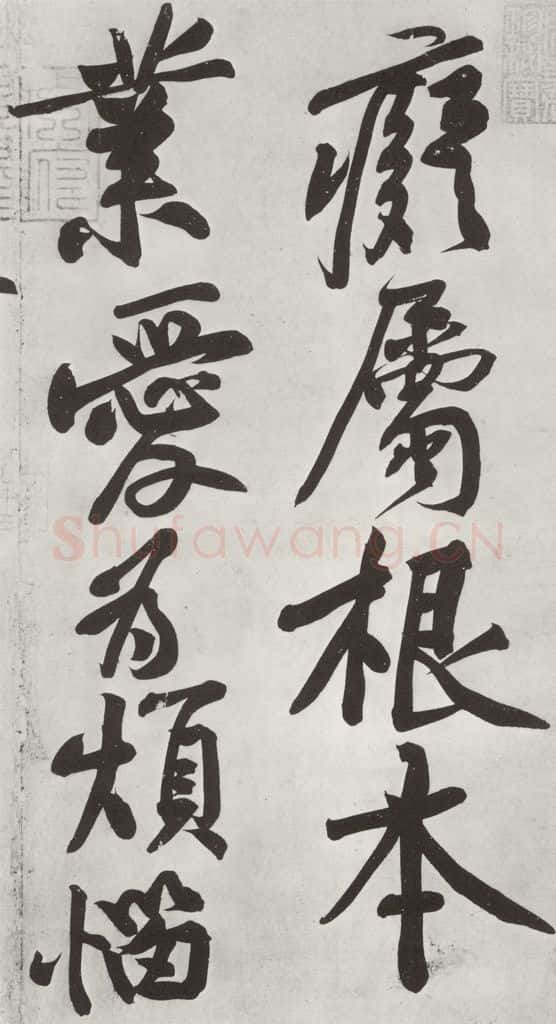 癡屬根本
業愛為煩惱
Shufawang.CN